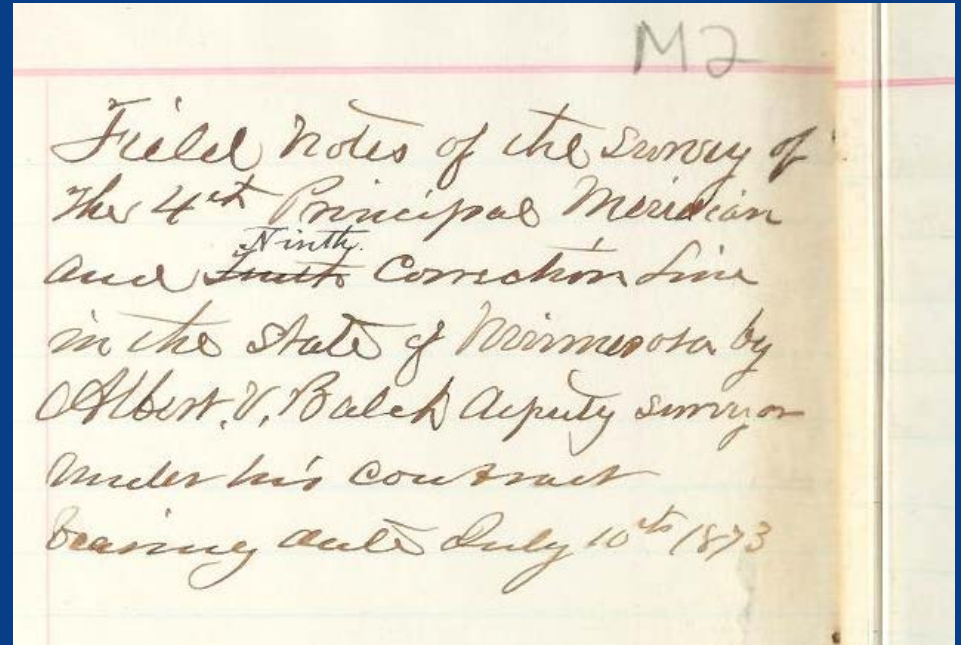 M2
Field Notes of the Survey of
the 4th Principal Meridian
Ninth.
and Correction Line
in the State of Minnesota by
Albert. V. Balch Deputy Surveyor
under his contract
bearing date July 10th 1873